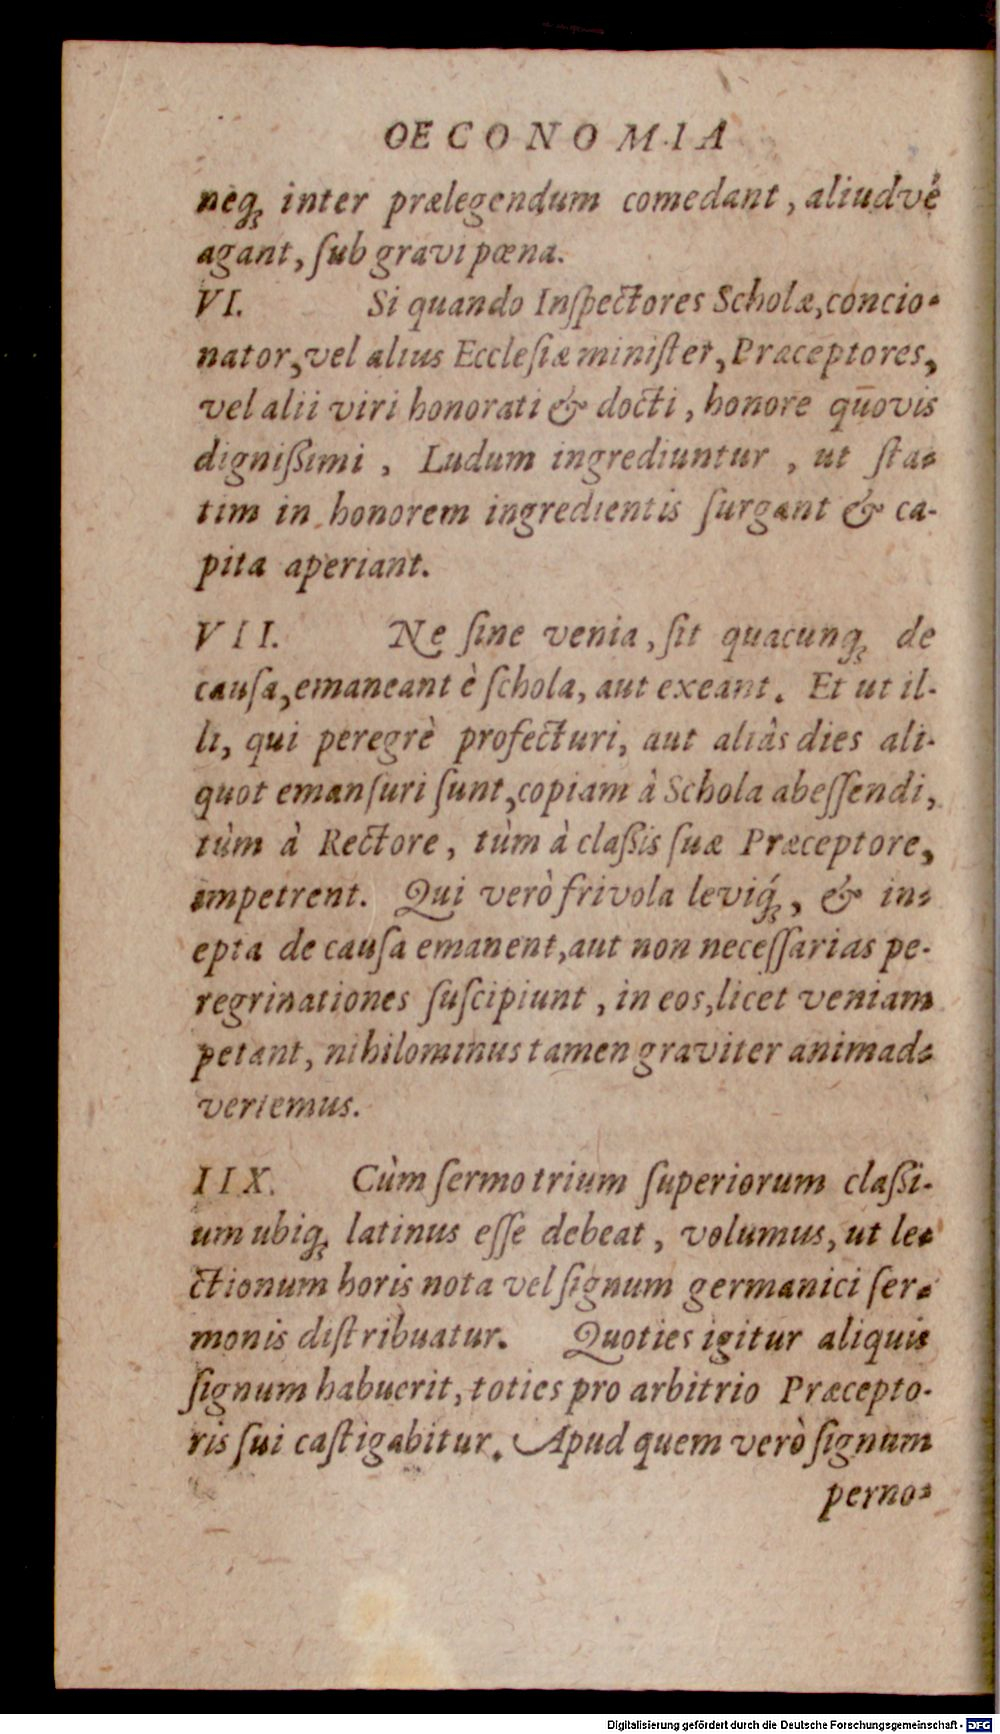 OECONOMIA
neq́ꝫ inter prælegendum comedant, aliudvè
agant, ſub gravi pœna.
VI. Si quando Inſpectores Scholæ, concio-
nator, vel alius Eccleſiæ miniſter, Præceptores,
vel alii viri honorati & docti, honore quōvis
digniſſimi, Ludum ingrediuntur, ut ſta-
tim in honorem ingredientis ſurgant & ca-
pita aperiant.
VII. Ne ſine venia, ſit quacunqꝫ de
cauſa, emaneant è ſchola, aut exeant. Et ut il-
li, qui peregrè profecturi, aut aliàs dies ali-
quot emanſuri ſunt, copiam à Schola abeſſendi,
tùm à Rectore, tùm à claſſis ſuæ Præceptore,
impetrent. Qui verò frivola leviq́ꝫ, & in-
epta de cauſa emanent, aut non neceſſarias pe-
regrinationes ſuſcipiunt, in eos, licet veniam
petant, nihilominus tamen graviter animad-
vertemus.
IIX. Cùm ſermo trium ſuperiorum claſſi-
um ubiqꝫ latinus eſſe debeat, volumus, ut le-
ctionum horis nota vel ſignum germanici ſer-
monis diſtribuatur. Quoties igitur aliquis
ſignum habuerit, toties pro arbitrio Præcepto-
ris ſui caſtigabitur. Apud quem verò ſignum
perno-
Digitalisierung gefördert durch die Deutsche Forschungsgemeinschaft - DFG